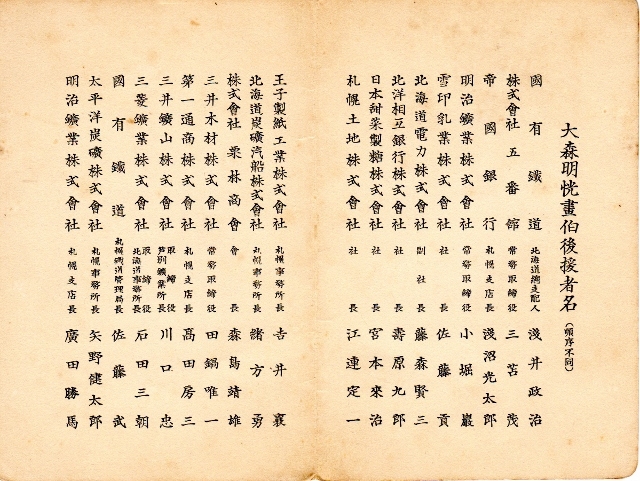 大森明恍畫伯後援者名（順序不同）
國有鐵道 北海道總支配人 淺井政治
株式會社五番館 常務取締役 三苫茂
帝國銀行 札幌支店長 淺沼光太郎
明治鑛業株式會社 常務取締役 小堀巖
雪印乳業株式會社 社長 佐藤貢
北海道電力株式會社 副社長 藤森賢三
北洋相互銀行株式會社 社長 壽原九郎
日本甜菜製糖株式會社 社長 宮本來治
札幌土地株式會社 社長 江連定一
王子製紙工業株式會社 札幌事務所長 吉井襄
北海道炭礦汽船株式會社 札幌事務所長 緒方勇
株式會社栗林商會 會長 森島靖雄
三井木材株式會社 常務取締役 田鍋唯一
第一通商株式會社 札幌支店長 高田房三
三井鑛山株式會社 取締役 芦別鑛業所長 川口忠
三菱鑛業株式會社 取締役 北海道事務所長 石田三朝
國有鐵道 札幌鐵道管理局長 佐藤武
太平洋炭礦株式會社 札幌事務所長 矢野健太郎
明治鑛業株式會社 札幌支店長 廣田勝馬